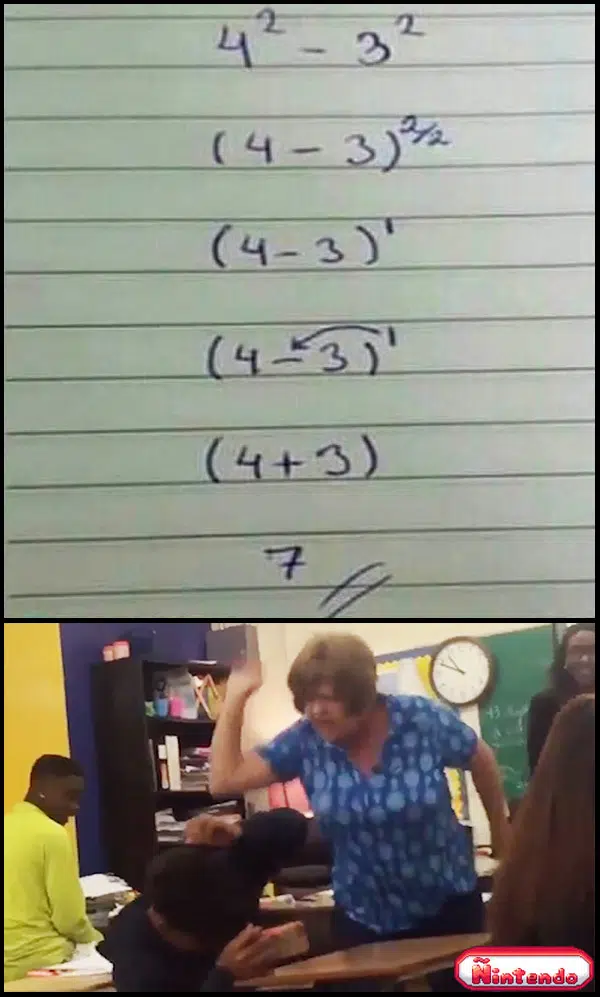 4² - 3²
(4 - 3)^2/2
(4 - 3)¹
(4 - 3)¹
(4 + 3)
7
Ñintendo